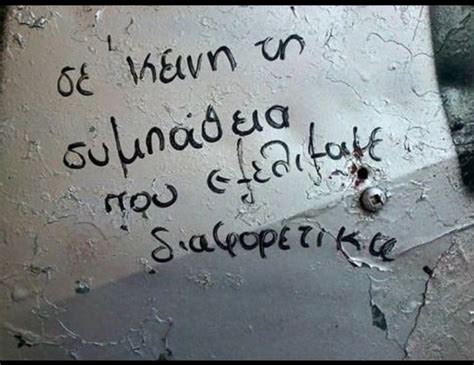 σε 'κεινη τη
συμπάθεια
που εξελιξαμε
διαφορετικα